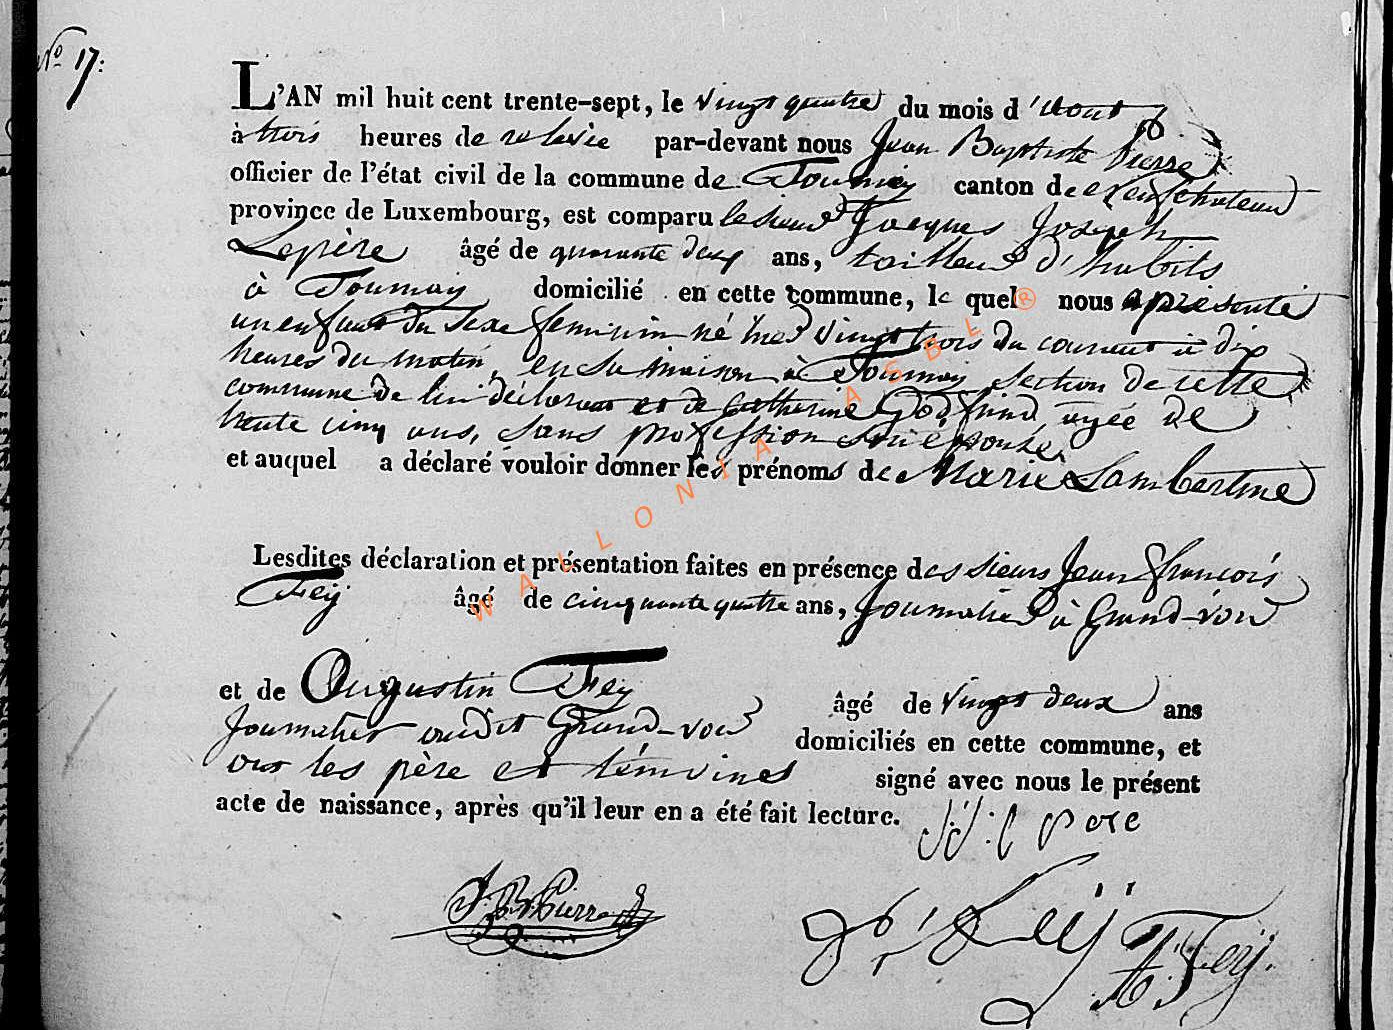 No 17:
L'AN mil huit cent trente-sept, le vingt quatre du mois d'aout
à trois heures de relevée par-devant nous Jean Baptiste Pierre
officier de l'état civil de la commune de Tournay canton de Neufchateau
province de Luxembourg, est comparu le sieur Jacques Joseph
Lepère âgé de quarante deux ans, tailleur d'habits
à Tournay domicilié en cette commune, le quel nous a présenté
un enfant du sexe feminin né hier vingt trois du courant à dix
heures du matin, en sa maison à Tournay section de cette
commune de lui déclarant et de Catherine Godfrind agée de
trente cinq ans, sans profession son épouse,
et auquel a déclaré vouloir donner les prénoms de Marie Lambertine
Lesdites déclaration et présentation faites en présence des sieurs Jean François
Feÿ âgé de cinquante quatre ans, Journalier à Grand-voir
et de Augustin Feÿ âgé de vingt deux ans
Journalier audit Grand-voir domiciliés en cette commune, et
ont les père et témoines signé avec nous le présent
acte de naissance, après qu'il leur en a été fait lecture.
J.J. Lepere
J. B. Pierre
J. f. Feÿ
A. Feÿ.
WALLONIA ASBL ®